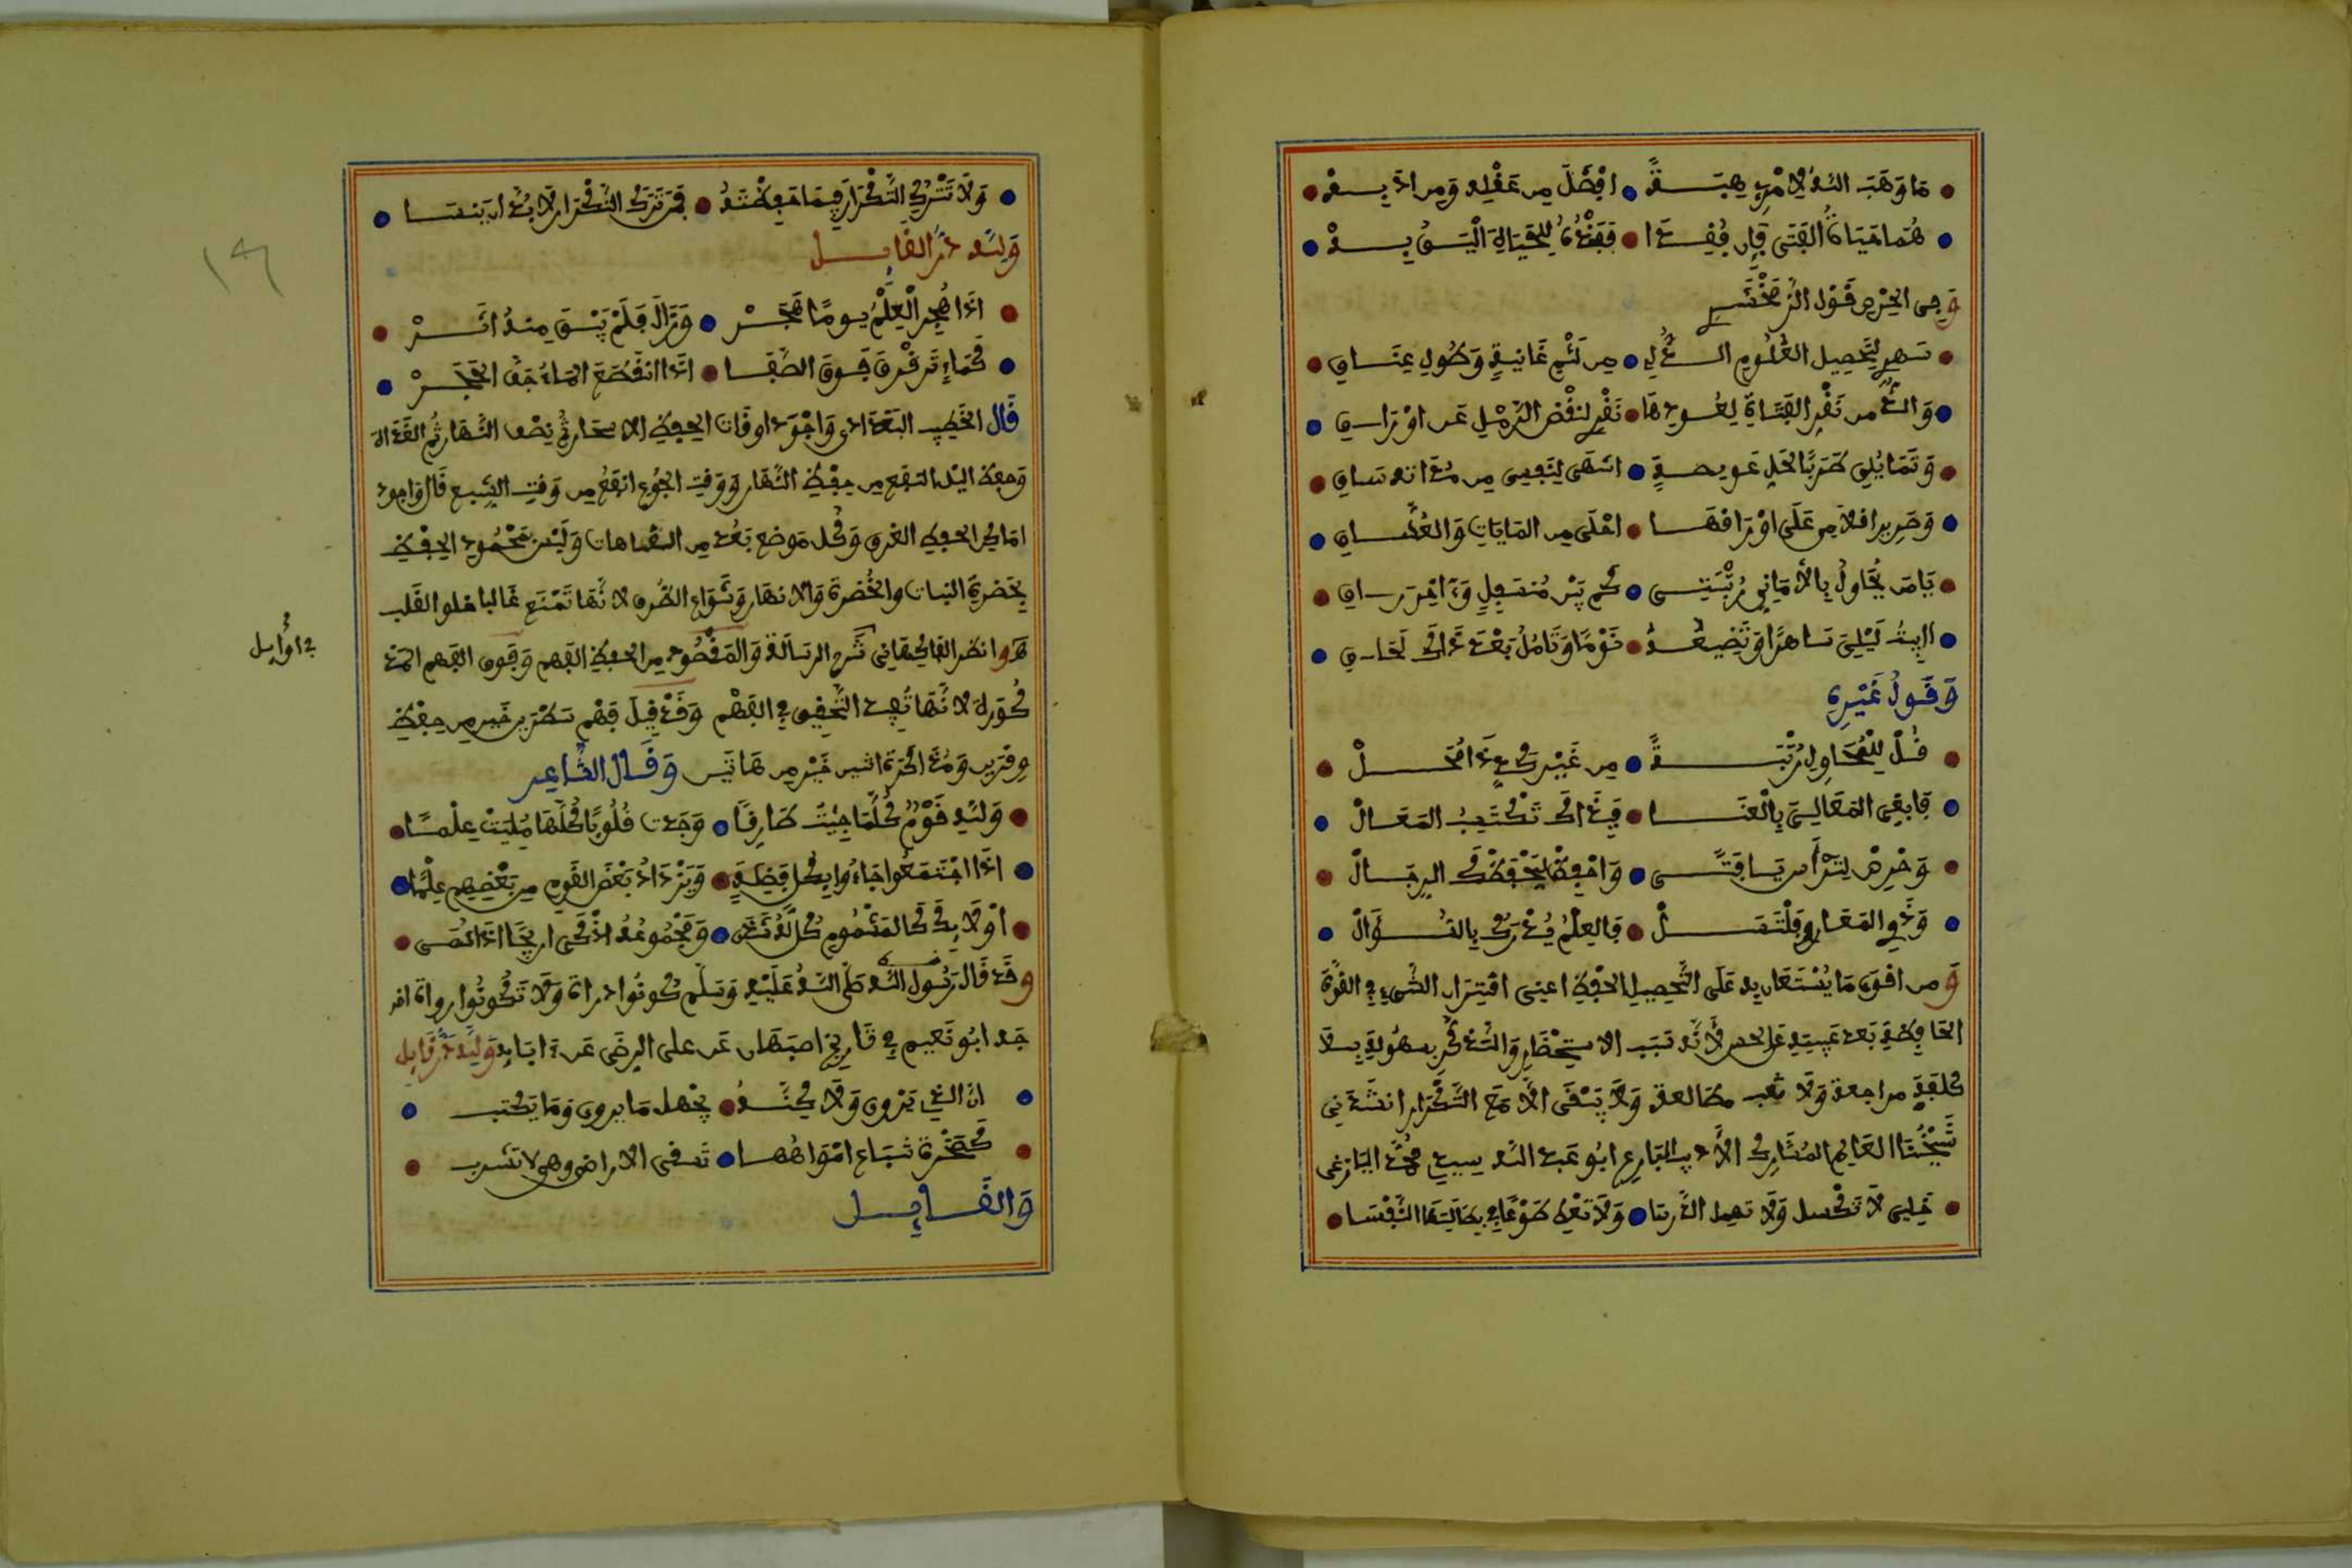 مَا وَهَبَ اللَّهُ لِامْرِئٍ هِبَةً • اَفْضَلَ مِن عَقْلِهِ وَمِن اَدَبِهْ
هُمَا حَيَاةُ الفَتَى فَإِن فُقِدَا • فَفَقْدُهُ لِلْحَيَاةِ اَلْيَقُ بِهْ
وَفِي الحِرْصِ قَوْل الزَّمَخْشَرِي
سَهَرِي لِتَحْصِيلِ العُلُومِ الذُّ لِي • مِن لَثْمِ غَانِيَةٍ وَطُولِ عِنَاقِ
وَالذُّ مِن نَقْرِ الفَتَاةِ لِعُودِهَا • نَقْرِي لِنَفْضِ الرَّمْلِ عَن اَوْرَاقِي
وَتَمَايُلِي طَرَبًا لِحَلِّ عَوِيصَةٍ • اَشْهَى لِنَفْسِي مِن مُدَامَةِ سَاقِ
وَصَرِيرِ اقلامِي عَلَى اَوْرَاقِهَا • اَحْلَى مِن الغَايَاتِ وَالعُشَّاقِ
يَا مَن يُحَاوِلُ بِالأَمَانِي رُتْبَتِي • كَم بَيْنَ مُنسَفِلٍ وَآخَرَ رَاقِ
أَأَبِيتُ لَيْلِي سَاهِرًا وَتُضِيعُهُ • نَوْمًا وَتَامُلُ بَعْدَ ذَاكَ لَحَاقِي
وَقَولُ غَيْرِهِ
قُلْ لِلْمُحَاوِلِ رُتْبَةً • مِن غَيْرِ كَدٍّ ذَا مُحَالْ
فَابْغِي المَعَالِيَ بِالْعَنَا • فَبِذَاكَ تُكْتَسَبُ المَعَالْ
وَاحْرِصْ لِتَرْأَسَ يَا فَتَى • وَاحْفَظْ لِيَحْفَظْكَ الرِّجَالْ
وَذَوِي المَعَارِفِ فَلْتَسَلْ • فَالعِلْمُ يُدْرَكُ بِالسُّؤَالْ
وَمِن اقوَى مَا يُسْتَعَان بِهِ عَلَى التَّحْصِيلِ الحِفْظ اعنِي اقْتِرَان الشَّيْءِ فِي القُوَّة
الحَافِظَةِ بَعد غَيْبَتِهِ عَن الحس لأَنَّهُ سَبَب الاسْتِحْضَارِ وَالتَّذَكُّرِ بسهُولَةٍ بِلَا
كُلْفَةِ مراجعة وَلَا تعب مطالعة وَلَا يَبْقَى الَّا مَعَ التَّكْرَار انشَدَنِي
شَيْخُنَا العَالِم المُشَارِك الأَدِيب البَارِع ابُو عَبد اللَّه سِيدِي مُحَمَّد اليَازغِي
خَلِيلِي لَا تَكْسَل وَلَا تُهمِل الدَّرسَا • وَلَا تُعْطِ طَوْعًا فِي بِطَالَتِهَا النَّفْسَا
وَلَا تَتْرُكِ التَّكْرَارَ فِيمَا حَفِظْتَهُ • فَمَن تَرَكَ التَّكْرَارَ لَا بُدَّ ان يَنسَا
وَلِلَّهِ دَرّ القَائِل
اذَا هُجِرَ العِلْمُ يَومًا هَجَرْ • وَزَالَ فَلَمْ يَبْقَ مِنهُ اَثَرْ
كَمَاءٍ تَرَقْرَقَ فَوقَ الصَّفَا • اذَا انقَطَعَ المَاءُ جَفَّ الحَجَرْ
قَال الخَطِيب البَغدَادِي وَاَجْوَد اوقَات الحِفظ الاسحَار ثُمَّ نِصْف النَّهَار ثُمَّ الغَدَاة
وَحِفظ اليْل انفَع مِن حِفْظِ النَّهَار وَوَقت الجُوع انفَعُ مِن وَقتِ الشِّبع قَال وَاجود
امَاكِن الحفظ الغرف وَكُل مَوضع بَعُد مِن المُلْهِيَات وَلَيْسَ مَحْمُود الحِفْظِ
بِحَضرَةِ النبَات والخُضرَة وَالانهَار وَشَوَارِع الطُّرق لانَّهَا تَمْنَع غَالبا خلو القَلب
هـ وانظر الفاكهاني شَرح الرسَالَة وَالمَقْصُود مِن الحفظ الفهم وَقَوى الفهم
كُوَرهُ لانَّهَا تُفِيد التَّحقِيق في الفَهْم وَقَد قِيلَ فَهْم سَطْرَين خَير مِن حِفْظ
وِقْرَين وَمُذَاكَرَة اثنين خَيْر مِن هَاتَين وَقَال الشَّاعِر
وَلِلَّهِ قَوْمٌ كُلَّمَا جِئْتُ طَارِقًا • وَجَدتُ قُلُوبًا كُلَّهَا مُلِئَتْ عِلْمًا
اذَا اجْتَمَعُوا جَاءُوا بِكُلِّ فَضِيلَةٍ • وَيَزْدَادُ بَعْضُ القَومِ مِن بَعْضِهِم عِلْمًا
وقَد قَالَ رَسُول اللَّه صَلَّى اللَّهُ عَلَيْهِ وَسَلَّم كُونُوا دراة وَلَا تَكُونُوا رواة اخر
جَه ابُو نَعِيم في تَارِيخ اصبَهَان عَن على الرِضَى عَن ءابَائِهِ وَلِلَّهِ دَرّ قَايِل
انَّ الذِي يَرْوِي وَلَا كِنَّهُ • يَجْهَل مَا يروي وَمَا يَكْتب
كَصَخْرَة تَنبَاع امْوَاهُهَا • تَسقي الاراضي وهي لا تشرب
وَالقَايِل
في اوَايل
١٦